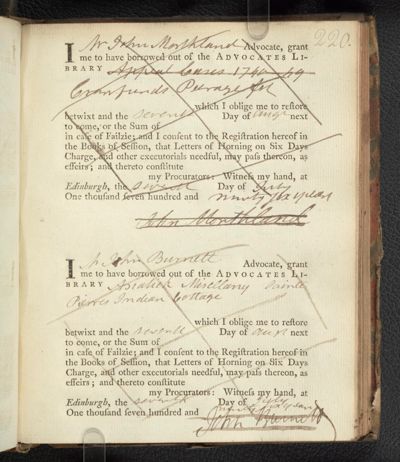 220.
I Mr John Morthland Advocate, grant
me to have borrowed out of the ADVOCATES LI-
BRARY Appeal Cases 1740
Cranfurds Peerage &c
which I oblige me to reſtore
betwixt and the seventh Day of augt next
to come, or the Sum of
in caſe of Failzie; and I conſent to the Regiſtration hereof in
the Books of Seſſion, that Letters of Horning on Six Days
Charge, and other executorials needful, may paſs thereon, as
effeirs; and thereto conſtitute
my Procurators: Witneſs my hand, at
Edinburgh, the seventh Day of July
One thouſand ſeven hundred and ninety six years
John Morthland
I Mr John Burnett Advocate, grant
me to have borrowed out of the ADVOCATES LI-
BRARY Asiatick Miscelany Sainte
Pierres Indian Cottage
which I oblige me to reſtore
betwixt and the seventh Day of augt next
to come, or the Sum of
in caſe of Failzie; and I conſent to the Regiſtration hereof in
the Books of Seſſion, that Letters of Horning on Six Days
Charge, and other executorials needful, may paſs thereon, as
effeirs; and thereto conſtitute
my Procurators: Witneſs my hand, at
Edinburgh, the seventh Day of July
One thouſand ſeven hundred and ninety six years
John Burnett